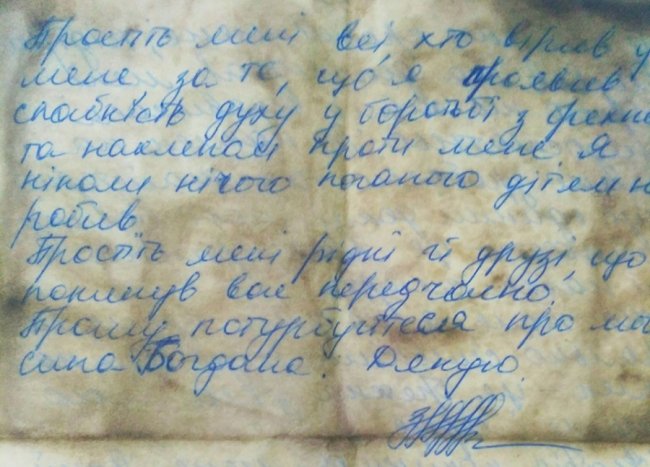 Простіть мені всі хто вірив у
мене, за те, що я проявив
слабкість духу у боротьбі з брехне
та наклепами проти мене. Я
ніколи нічого поганого дітям н
робив
Простіть мені рідні й друзі, що
покинув вас передчасно.
Прошу потурбуйтеся про мо
сина Богдана. Дякую.